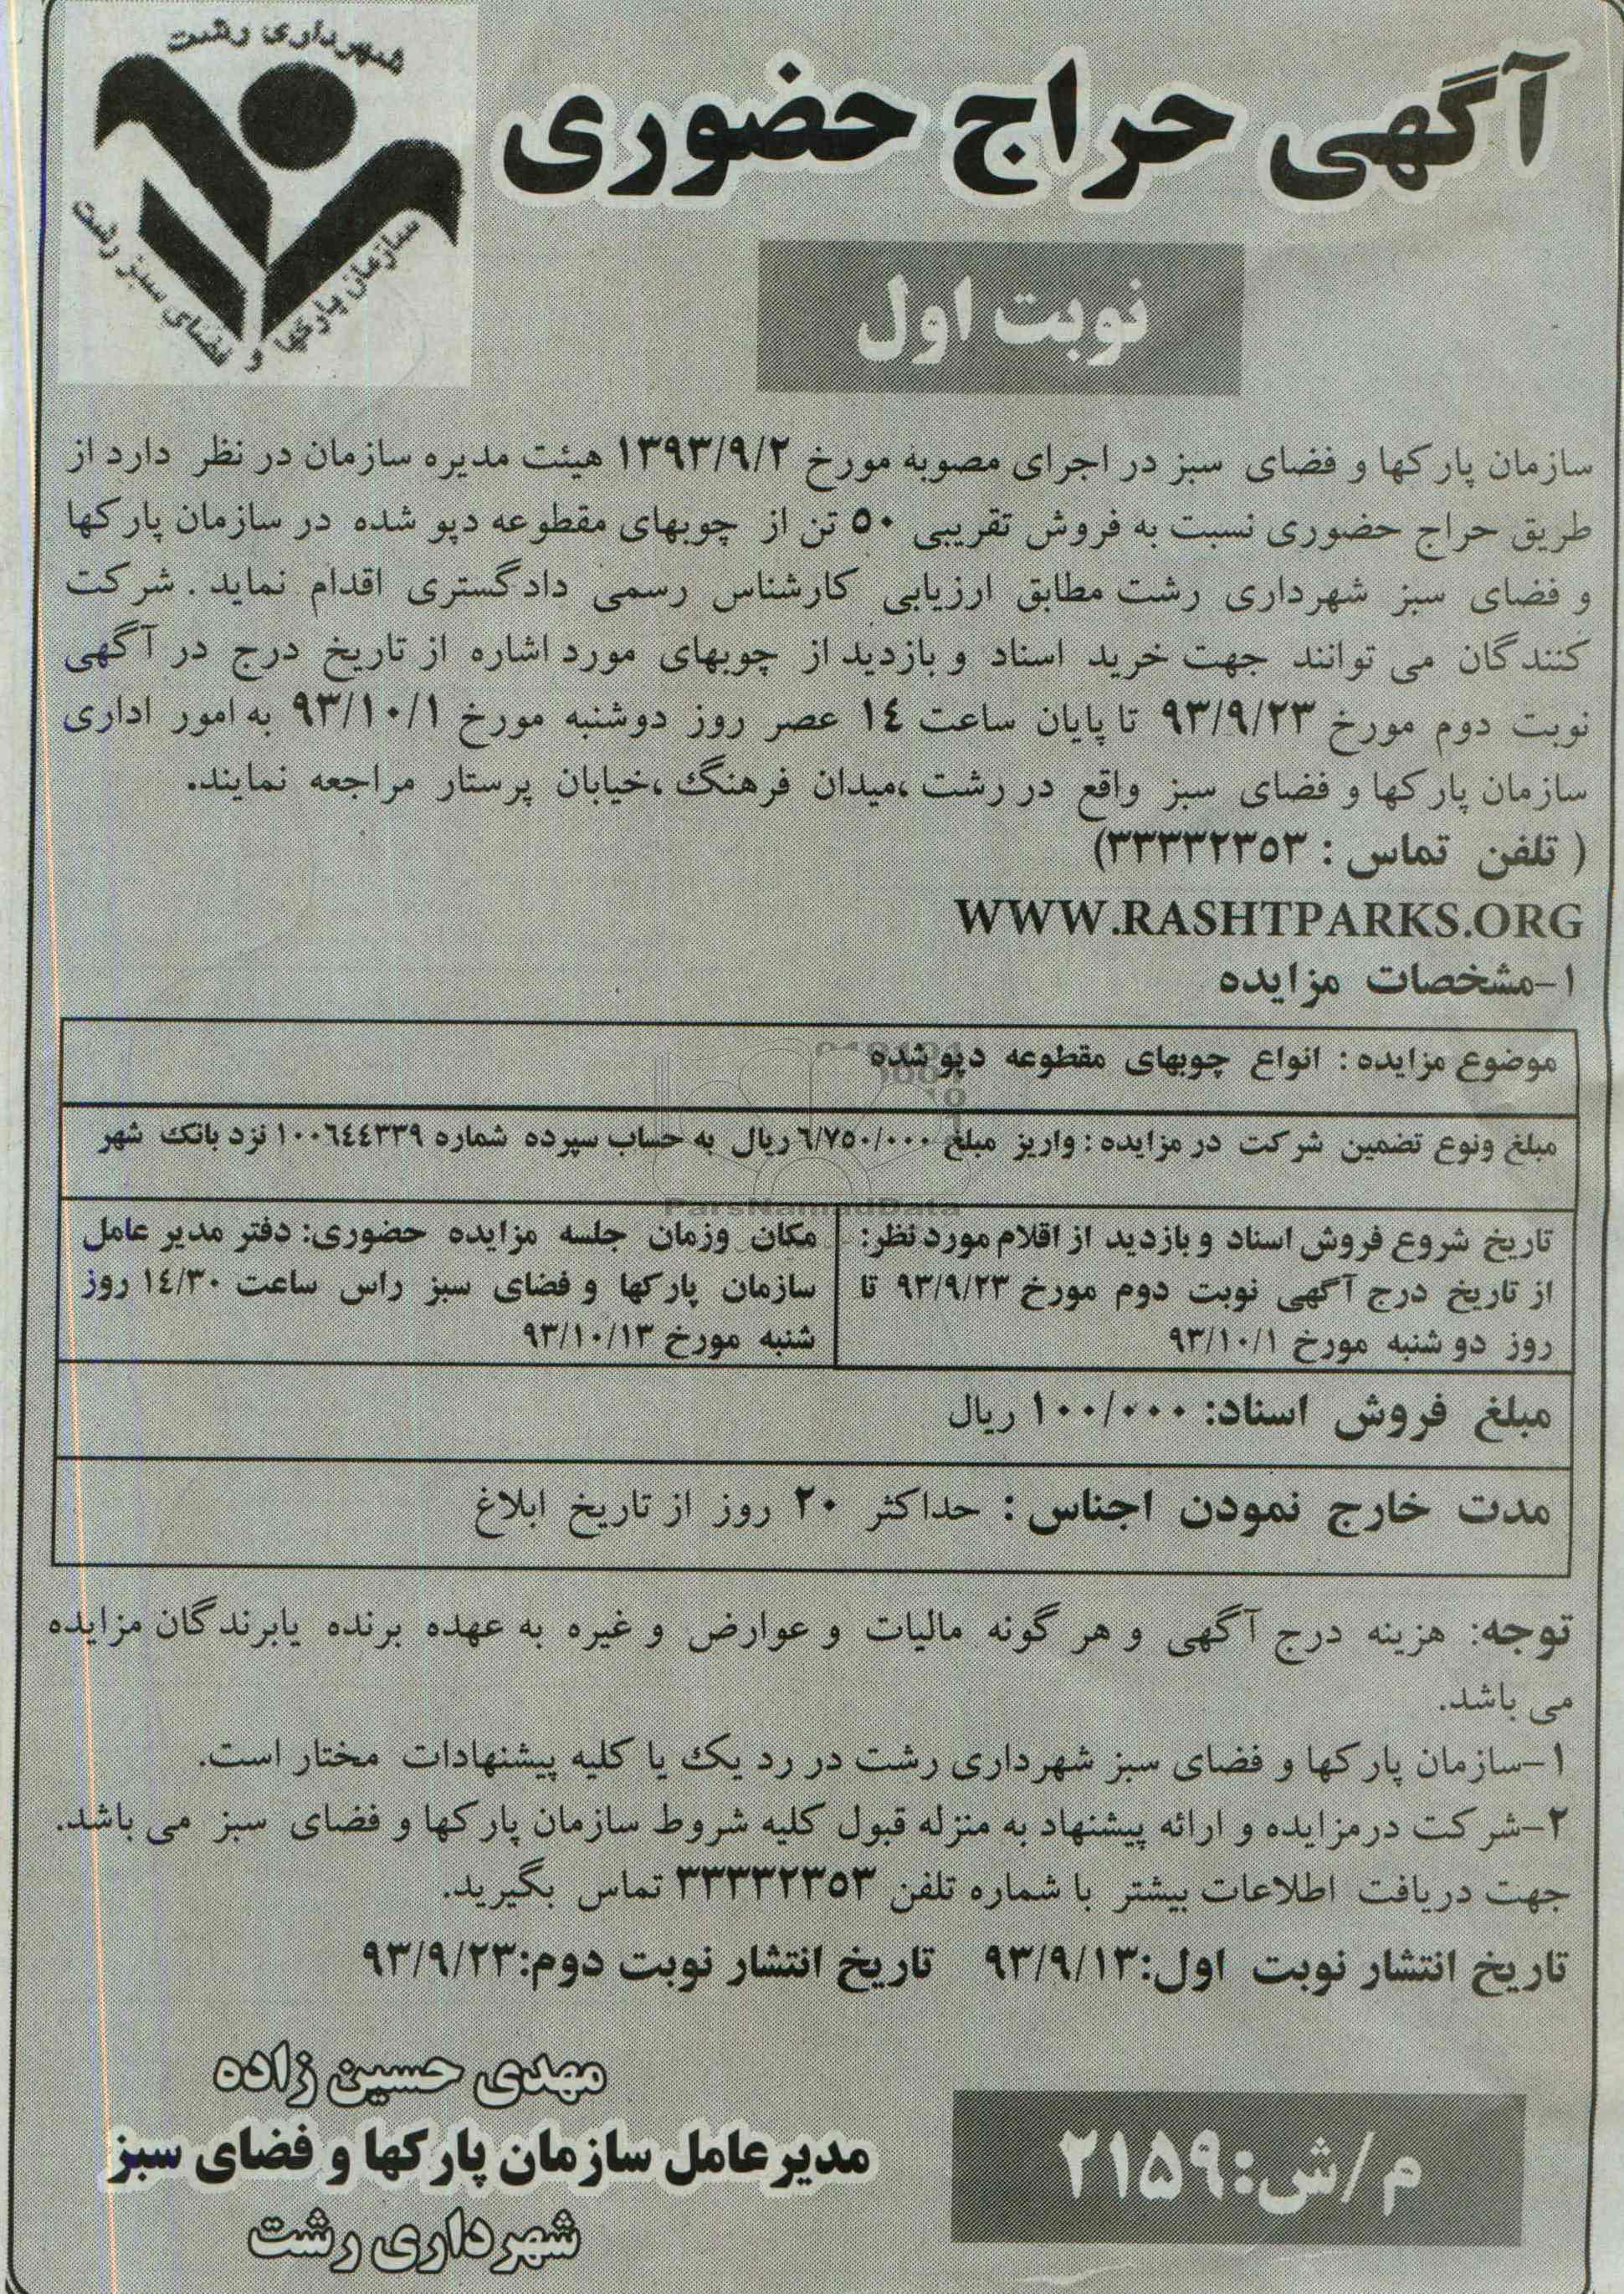 شهرداری رشت
سازمان پارکها و فضای سبز رشت
آگهی حراج حضوری
نوبت اول
سازمان پارکها و فضای سبز در اجرای مصوبه مورخ ۱۳۹۳/۹/۲ هیئت مدیره سازمان در نظر دارد از
طریق حراج حضوری نسبت به فروش تقریبی ۵۰ تن از چوبهای مقطوعه دپو شده در سازمان پارکها
و فضای سبز شهرداری رشت مطابق ارزیابی کارشناس رسمی دادگستری اقدام نماید . شرکت
کنندگان می توانند جهت خرید اسناد و بازدید از چوبهای مورد اشاره از تاریخ درج در آگهی
نوبت دوم مورخ ۹۳/۹/۲۳ تا پایان ساعت ۱۴ عصر روز دوشنبه مورخ ۹۳/۱۰/۱ به امور اداری
سازمان پارکها و فضای سبز واقع در رشت ،میدان فرهنگ ،خیابان پرستار مراجعه نمایند.
( تلفن تماس : ۳۳۳۳۲۳۵۳)
WWW.RASHTPARKS.ORG
۱-مشخصات مزایده
موضوع مزایده : انواع چوبهای مقطوعه دپو شده
مبلغ ونوع تضمین شرکت در مزایده : واریز مبلغ ۶/۷۵۰/۰۰۰ ریال به حساب سپرده شماره ۱۰۰۶۴۴۳۳۹ نزد بانک شهر
ParsNamadData
تاریخ شروع فروش اسناد و بازدید از اقلام مورد نظر:
از تاریخ درج آگهی نوبت دوم مورخ ۹۳/۹/۲۳ تا
روز دو شنبه مورخ ۹۳/۱۰/۱
مکان وزمان جلسه مزایده حضوری: دفتر مدیر عامل
سازمان پارکها و فضای سبز راس ساعت ۱۴/۳۰ روز
شنبه مورخ ۹۳/۱۰/۱۳
مبلغ فروش اسناد: ۱۰۰/۰۰۰ ریال
مدت خارج نمودن اجناس : حداکثر ۲۰ روز از تاریخ ابلاغ
توجه: هزینه درج آگهی و هر گونه مالیات و عوارض و غیره به عهده برنده یابرندگان مزایده
می باشد.
۱-سازمان پارکها و فضای سبز شهرداری رشت در رد یک یا کلیه پیشنهادات مختار است.
۲-شرکت درمزایده و ارائه پیشنهاد به منزله قبول کلیه شروط سازمان پارکها و فضای سبز می باشد.
جهت دریافت اطلاعات بیشتر با شماره تلفن ۳۳۳۳۲۳۵۳ تماس بگیرید.
تاریخ انتشار نوبت اول:۹۳/۹/۱۳ تاریخ انتشار نوبت دوم:۹۳/۹/۲۳
مهدی حسین زاده
مدیرعامل سازمان پارکها و فضای سبز
شهرداری رشت
م/ش:۲۱۵۹